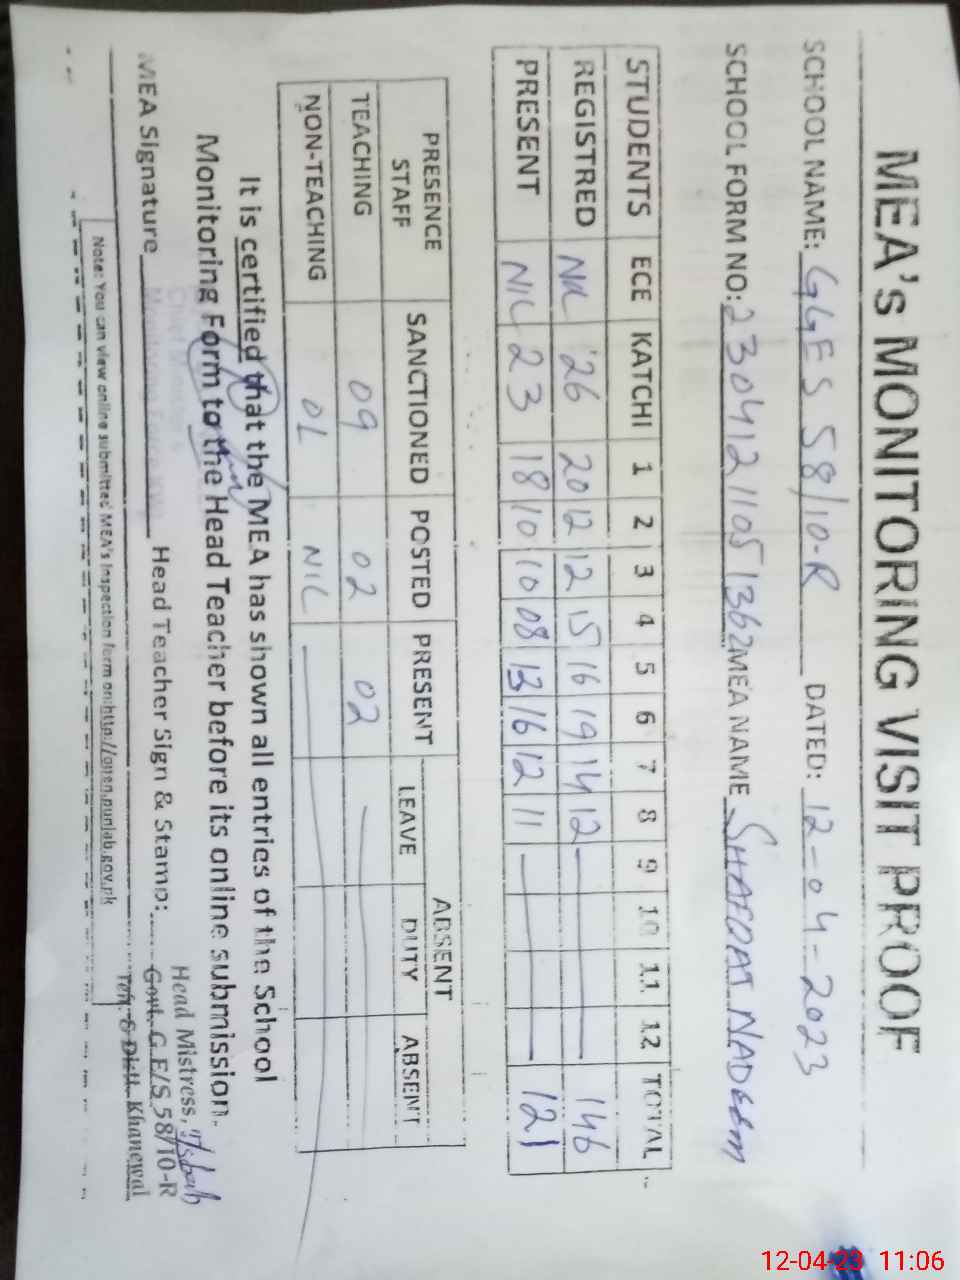 MEA's MONITORING VISIT PROOF
SCHOOL NAME: GGES 58/10-R DATED: 12-04-2023
SCHOOL FORM NO: 23041211051362 MEA NAME SHAFQAT NADEEM
STUDENTS ECE KATCHI 1 2 3 4 5 6 7 8 9 10 11 12 TOTAL
REGISTRED NIL 26 20 12 12 15 16 19 14 12 146
PRESENT NIL 23 18 10 10 08 13 16 12 11 121
PRESENCE STAFF SANCTIONED POSTED PRESENT ABSENT
LEAVE DUTY ABSENT
TEACHING 09 02 02
NON-TEACHING 01 NIL
It is certified that the MEA has shown all entries of the School
Monitoring Form to the Head Teacher before its online submission.
MEA Signature Head Teacher Sign & Stamp:
Head Mistress,
Govt. G.E/S 58/10-R
Teh: & Distt. Khanewal
Note: You can view online submitted MEA's Inspection form on:http://open.punjab.gov.pk
12-04-23 11:06